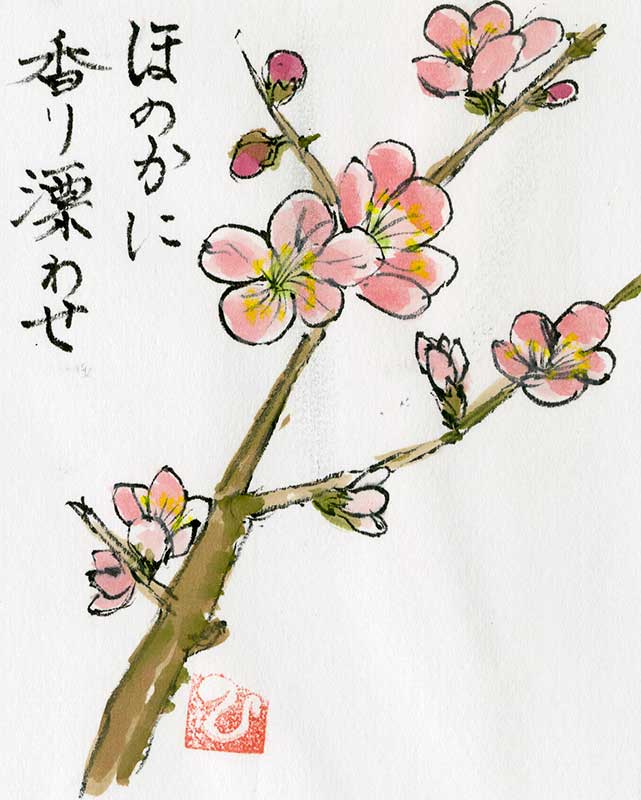 ほのかに
香り漂わせ